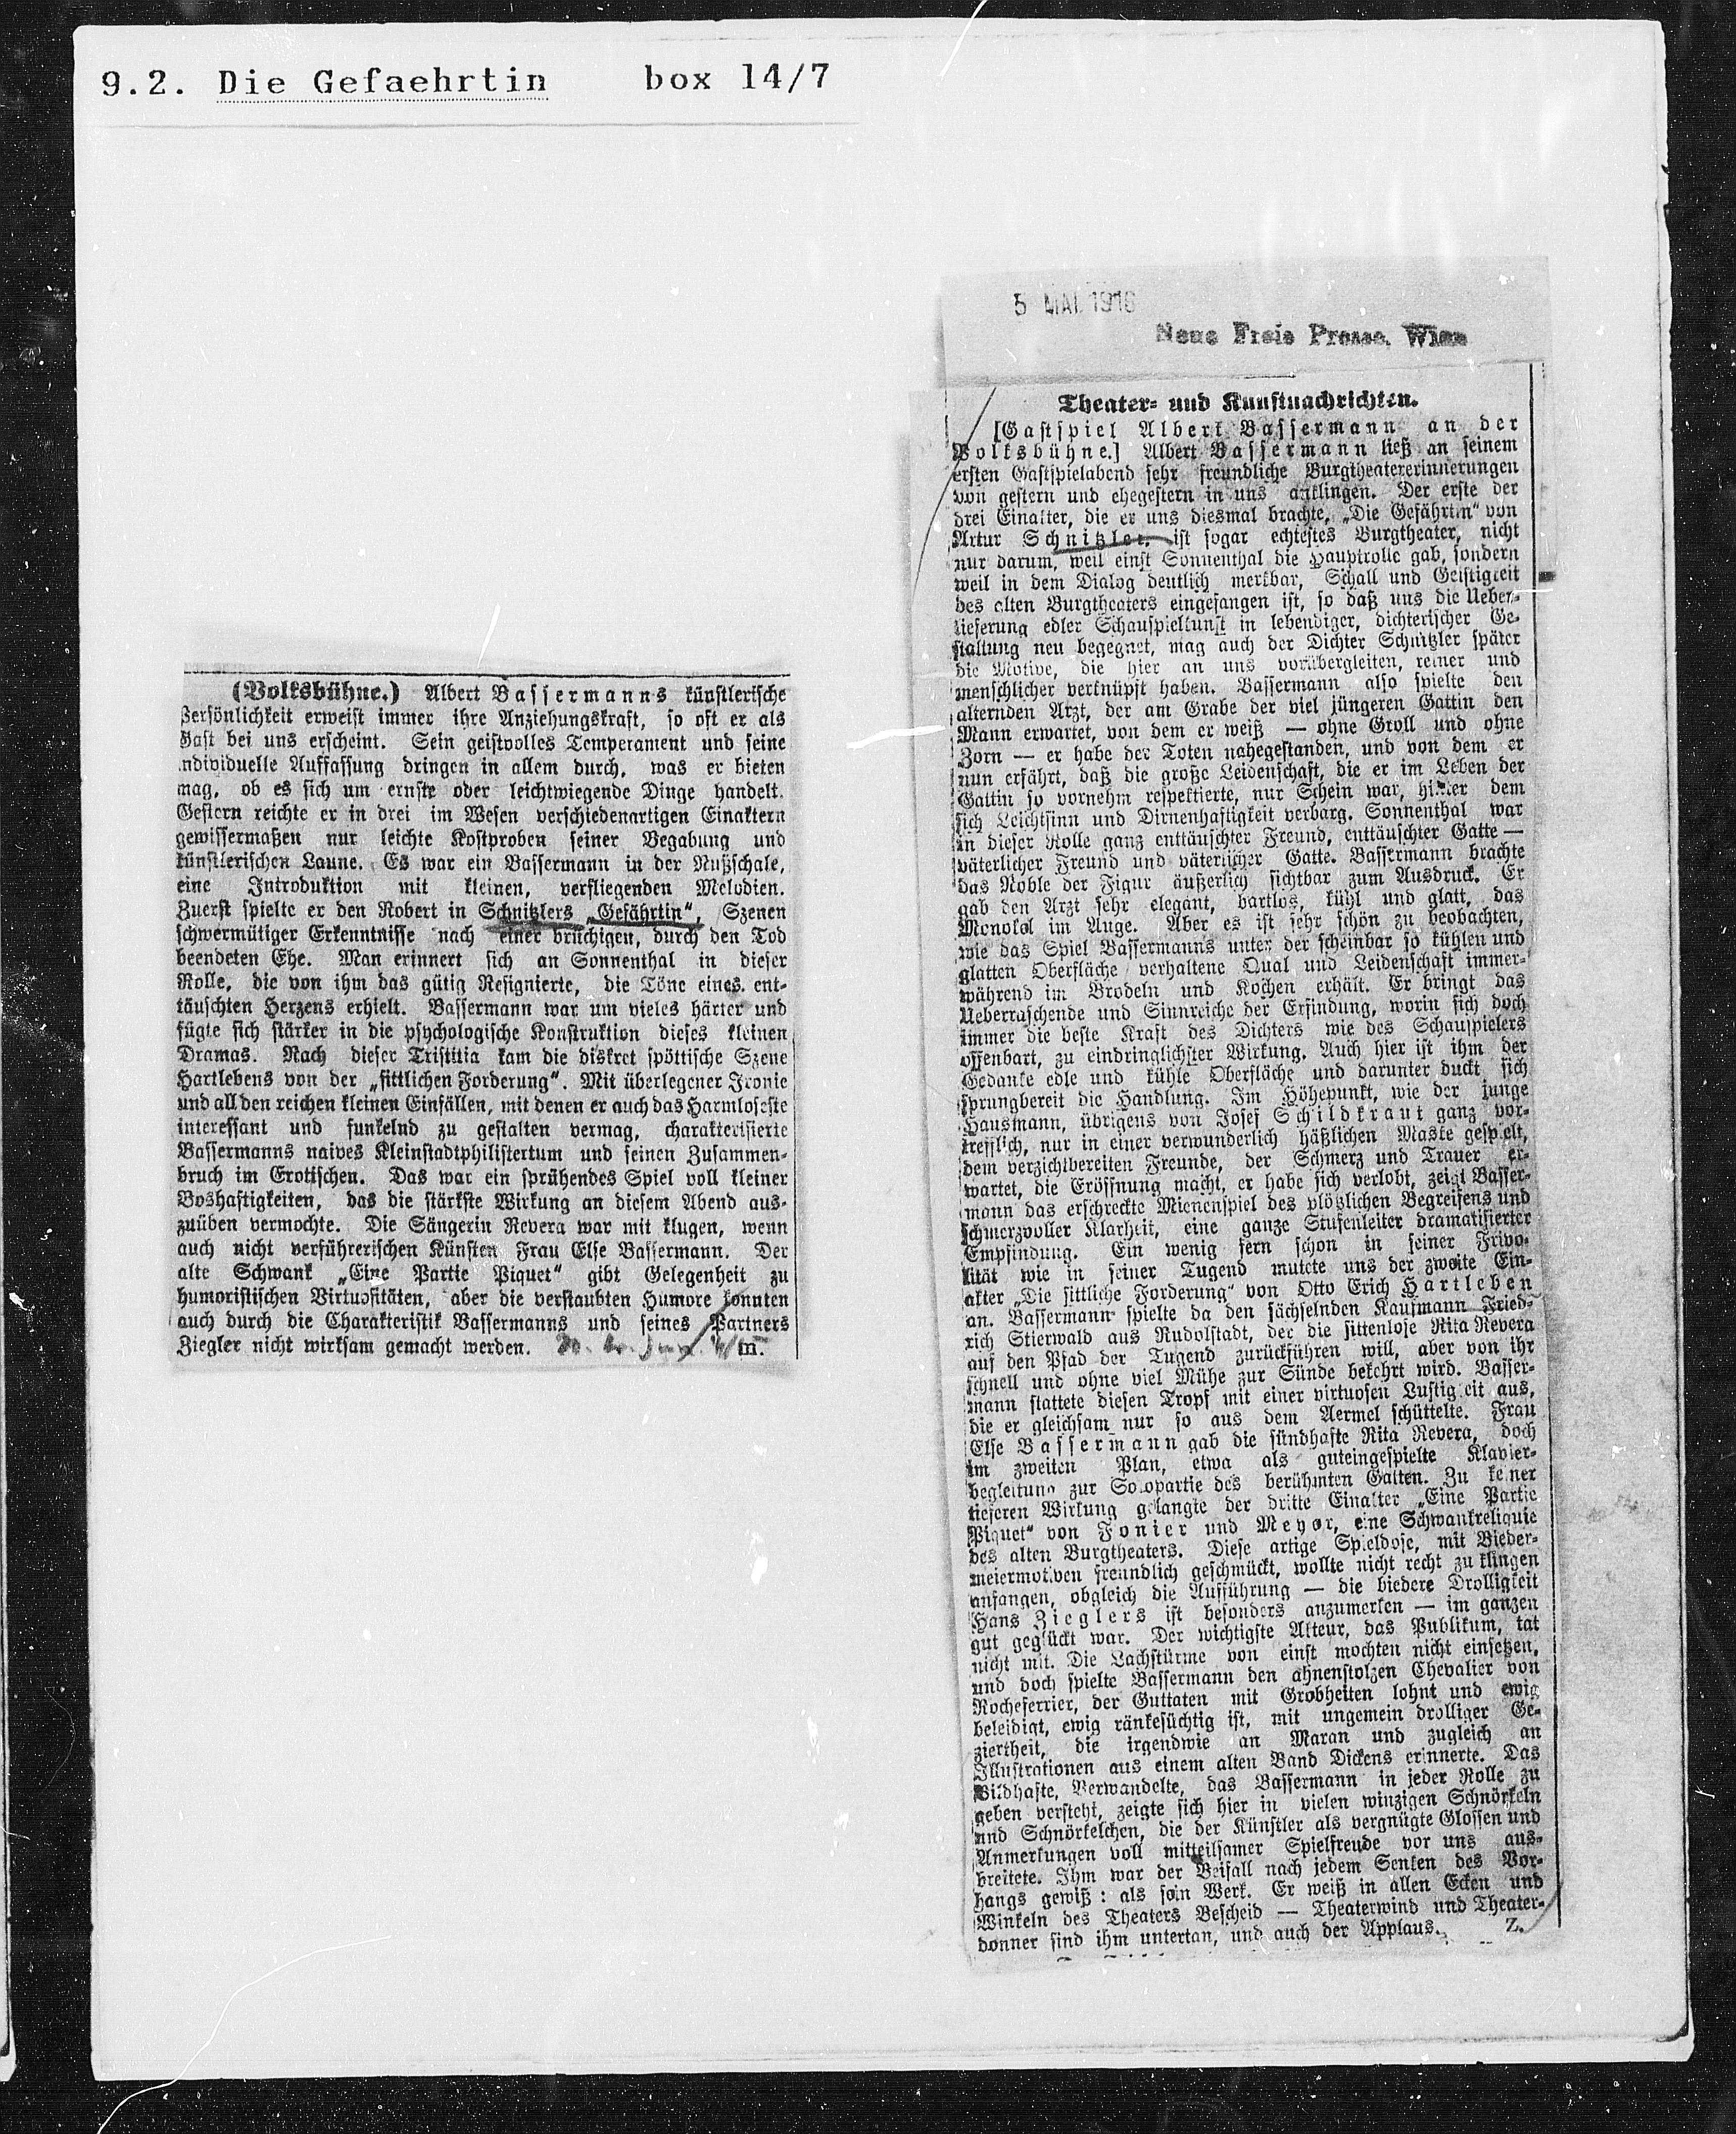 9.2. Die Gefaehrtin box 14/7
(Volksbühne.) Albert Bassermanns künstlerische
Persönlichkeit erweist immer ihre Anziehungskraft, so oft er als
Gast bei uns erscheint. Sein geistvolles Temperament und seine
individuelle Auffassung dringen in allem durch, was er bieten
mag, ob es sich um ernste oder leichtwiegende Dinge handelt.
Gestern reichte er in drei im Wesen verschiedenartigen Einaktern
gewissermaßen nur leichte Kostproben seiner Begabung und
künstlerischen Laune. Es war ein Bassermann in der Nußschale,
eine Introduktion mit kleinen, verfliegenden Melodien.
Zuerst spielte er den Robert in Schnitzlers „Gefährtin“, Szenen
schwermütiger Erkenntnisse nach einer brüchigen, durch den Tod
beendeten Ehe. Man erinnert sich an Sonnenthal in dieser
Rolle, die von ihm das gütig Resignierte, die Töne eines ent-
täuschten Herzens erhielt. Bassermann war um vieles härter und
fügte sich stärker in die psychologische Konstruktion dieses kleinen
Dramas. Nach dieser Tristitia kam die diskret spöttische Szene
Hartlebens von der „sittlichen Forderung“. Mit überlegener Ironie
und all den reichen kleinen Einfällen, mit denen er auch das Harmloseste
interessant und funkelnd zu gestalten vermag, charakterisierte
Bassermanns naives Kleinstadtphilistertum und seinen Zusammen-
bruch im Erotischen. Das war ein sprühendes Spiel voll kleiner
Boshaftigkeiten, das die stärkste Wirkung an diesem Abend aus-
zuüben vermochte. Die Sängerin Revera war mit klugen, wenn
auch nicht verführerischen Künsten Frau Else Bassermann. Der
alte Schwank „Eine Partie Piquet“ gibt Gelegenheit zu
humoristischen Virtuositäten, aber die verstaubten Humore konnten
auch durch die Charakteristik Bassermanns und seines Partners
Ziegler nicht wirksam gemacht werden. m.
5 MAI 1916
Neue Freie Presse, Wien
Theater- und Kunstnachrichten.
[Gastspiel Albert Bassermann an der
Volksbühne.] Albert Bassermann ließ an seinem
ersten Gastspielabend sehr freundliche Burgtheatererinnerungen
von gestern und ehegestern in uns anklingen. Der erste der
drei Einakter, die er uns diesmal brachte, „Die Gefährtin“ von
Artur Schnitzler, ist sogar echtestes Burgtheater, nicht
nur darum, weil einst Sonnenthal die Hauptrolle gab, sondern
weil in dem Dialog deutlich merkbar, Schall und Geistigkeit
des alten Burgtheaters eingefangen ist, so daß uns die Ueber-
lieferung edler Schauspielkunst in lebendiger, dichterischer Ge-
staltung neu begegnet, mag auch der Dichter Schnitzler später
die Motive, die hier an uns vorübergleiten, reiner und
menschlicher verknüpft haben. Bassermann also spielte den
alternden Arzt, der am Grabe der viel jüngeren Gattin den
Mann erwartet, von dem er weiß — ohne Groll und ohne
Zorn — er habe der Toten nahegestanden, und von dem er
nun erfährt, daß die große Leidenschaft, die er im Leben der
Gattin so vornehm respektierte, nur Schein war, hinter dem
sich Leichtsinn und Dirnenhaftigkeit verbarg. Sonnenthal war
in dieser Rolle ganz enttäuschter Freund, enttäuschter Gatte —
väterlicher Freund und väterlicher Gatte. Bassermann brachte
das Noble der Figur äußerlich sichtbar zum Ausdruck. Er
gab den Arzt sehr elegant, bartlos, kühl und glatt, das
Monokol im Auge. Aber es ist sehr schön zu beobachten,
wie das Spiel Bassermanns unter der scheinbar so kühlen und
glatten Oberfläche verhaltene Qual und Leidenschaft immer-
während im Brodeln und Kochen erhält. Er bringt das
Ueberraschende und Sinnreiche der Erfindung, worin sich doch
immer die beste Kraft des Dichters wie des Schauspielers
offenbart, zu eindringlichster Wirkung. Auch hier ist ihm der
Gedanke edle und kühle Oberfläche und darunter duckt sich
sprungbereit die Handlung. Im Höhepunkt, wie der junge
Hausmann, übrigens von Josef Schildkraut ganz vor-
trefflich, nur in einer verwunderlich häßlichen Maske gespielt,
dem verzichtbereiten Freunde, der Schmerz und Trauer er-
wartet, die Eröffnung macht, er habe sich verlobt, zeigt Basser-
mann das erschreckte Mienenspiel des plötzlichen Begreifens und
schmerzvoller Klarheit, eine ganze Stufenleiter dramatisierter
Empfindung. Ein wenig fern schon in seiner Frivo-
lität wie in seiner Tugend mutete uns der zweite Ein-
akter „Die sittliche Forderung“ von Otto Erich Hartleben
an. Bassermann spielte da den sächselnden Kaufmann Fried-
rich Stierwald aus Rudolstadt, der die sittenlose Rita Revera
auf den Pfad der Tugend zurückführen will, aber von ihr
schnell und ohne viel Mühe zur Sünde bekehrt wird. Basser-
mann stattete diesen Tropf mit einer virtuosen Lustigkeit aus,
die er gleichsam nur so aus dem Aermel schüttelte. Frau
Else Bassermann gab die sündhafte Rita Revera, doch
im zweiten Plan, etwa als guteingespielte Klavier-
begleitung zur Solopartie des berühmten Gatten. Zu keiner
tieferen Wirkung gelangte der dritte Einakter „Eine Partie
Piquet“ von Fonier und Meyer, eine Schwankreliquie
des alten Burgtheaters. Diese artige Spieldose, mit Bieder-
meiermotiven freundlich geschmückt, wollte nicht recht zu klingen
anfangen, obgleich die Aufführung — die biedere Drolligkeit
Hans Zieglers ist besonders anzumerken — im ganzen
gut geglückt war. Der wichtigste Akteur, das Publikum, tat
nicht mit. Die Lachstürme von einst mochten nicht einsetzen,
und doch spielte Bassermann den ahnenstolzen Chevalier von
Rocheferrier, der Guttaten mit Grobheiten lohnt und ewig
beleidigt, ewig ränkesüchtig ist, mit ungemein drolliger Ge-
ziertheit, die irgendwie an Maran und zugleich an
Illustrationen aus einem alten Band Dickens erinnerte. Das
Bildhafte, Verwandelte, das Bassermann in jeder Rolle zu
geben versteht, zeigte sich hier in vielen winzigen Schnörkeln
und Schnörkelchen, die der Künstler als vergnügte Glossen und
Anmerkungen voll mitteilsamer Spielfreude vor uns aus-
breitete. Ihm war der Beifall nach jedem Senken des Vor-
hangs gewiß: als sein Werk. Er weiß in allen Ecken und
Winkeln des Theaters Bescheid — Theaterwind und Theater-
donner sind ihm untertan, und auch der Applaus. Z.